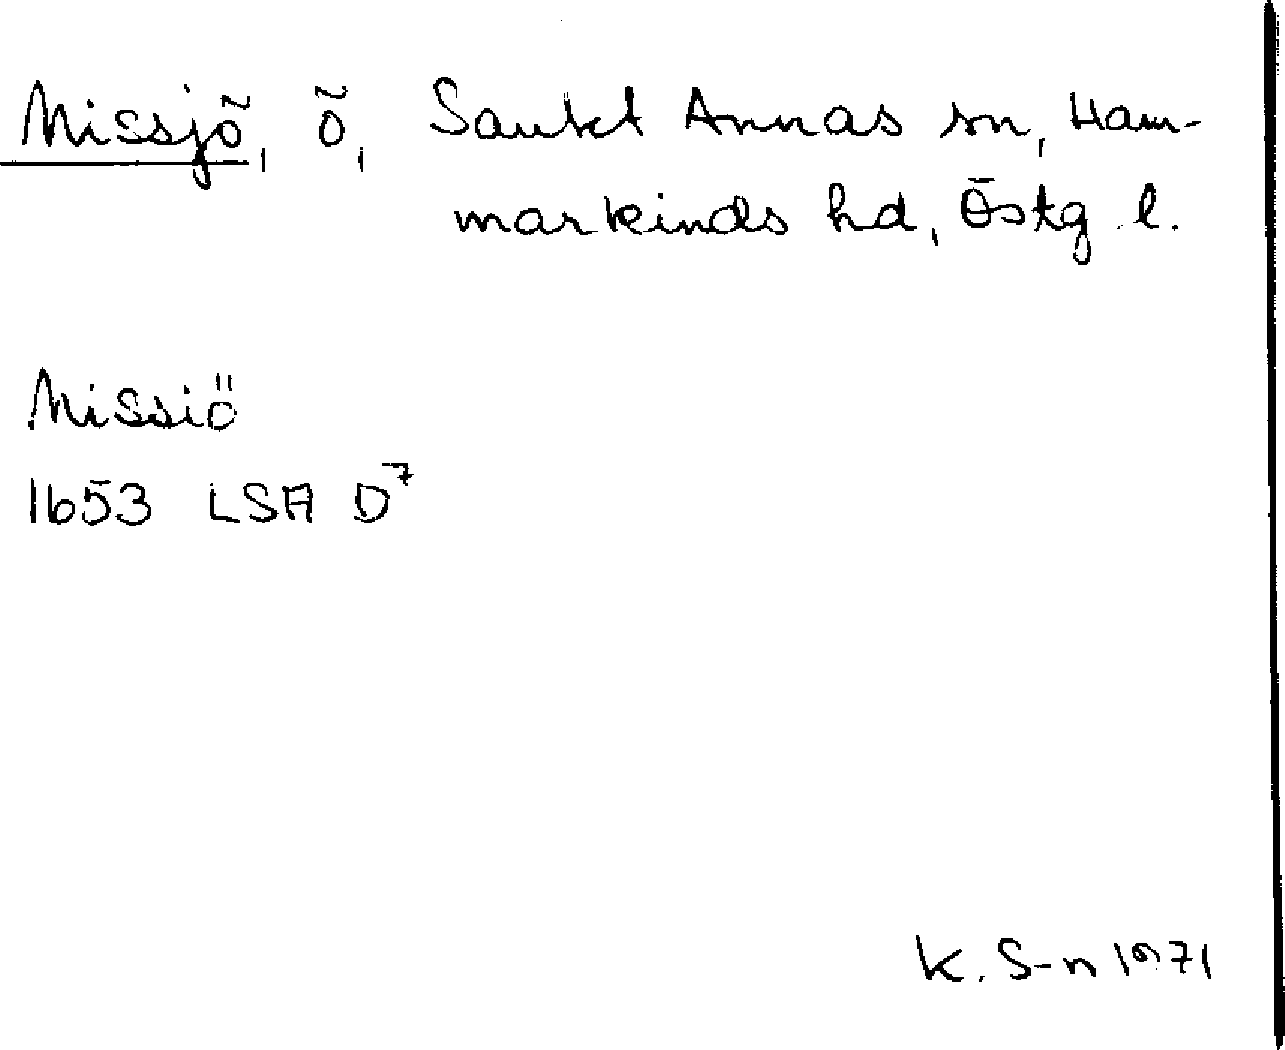 Missjö, ö, Sankt Annas sn, Ham-
markinds hd, Östg. l.
Missiö
1653 LSA D⁷
K. S-n 1971